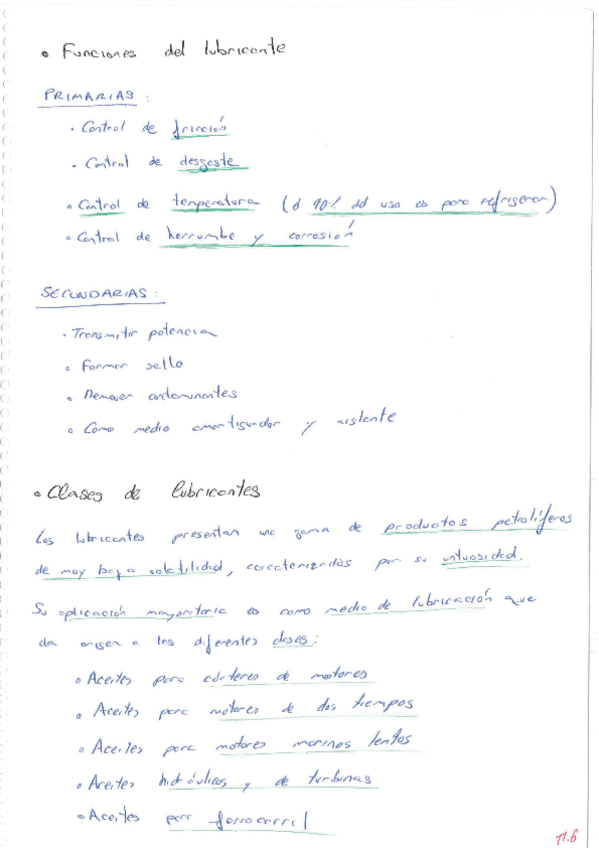 • Funciones del lubricante
PRIMARIAS :
• Control de fricción
• Control de desgaste
• Control de temperatura (el 90% del uso es para refrigerar)
• Control de herrumbe y corrosión
SECUNDARIAS :
• Transmitir potencia
• Formar sello
• Remover contaminantes
• Como medio amortiguador y aislante
• Clases de lubricantes
Los lubricantes presentan una gama de productos petrolíferos
de muy baja volatilidad, caracterizados por su untuosidad.
Su aplicación mayoritaria es como medio de lubricación que
da origen a las diferentes clases :
• Aceites para cárteres de motores
• Aceites para motores de dos tiempos
• Aceites para motores marinos lentos
• Aceites hidráulicos, y de turbinas
• Aceites para ferrocarril
11.6